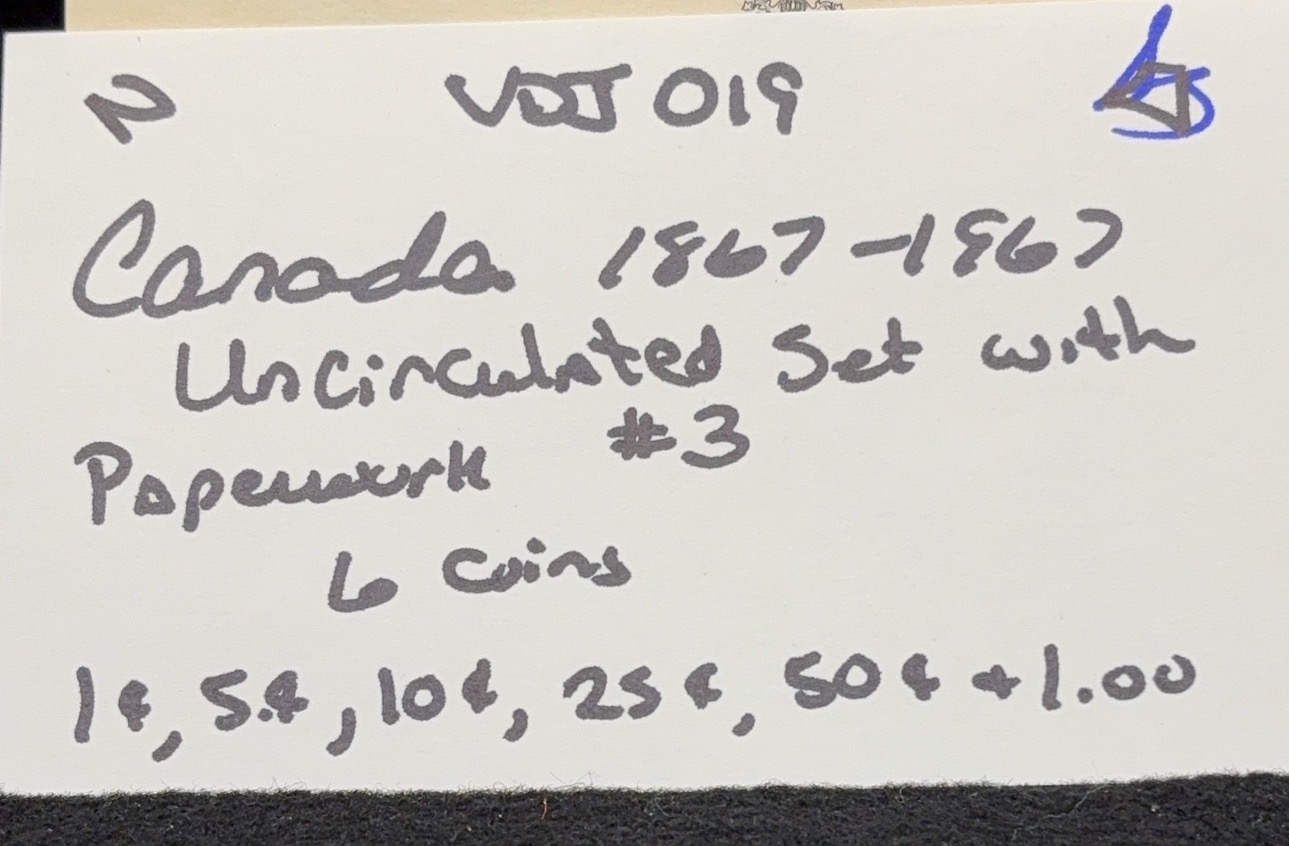 N VDJ 019
Canada 1867-1967
Uncirculated Set with
Paperwork #3
6 Coins
1¢, 5.¢, 10¢, 25¢, 50¢ + 1.00